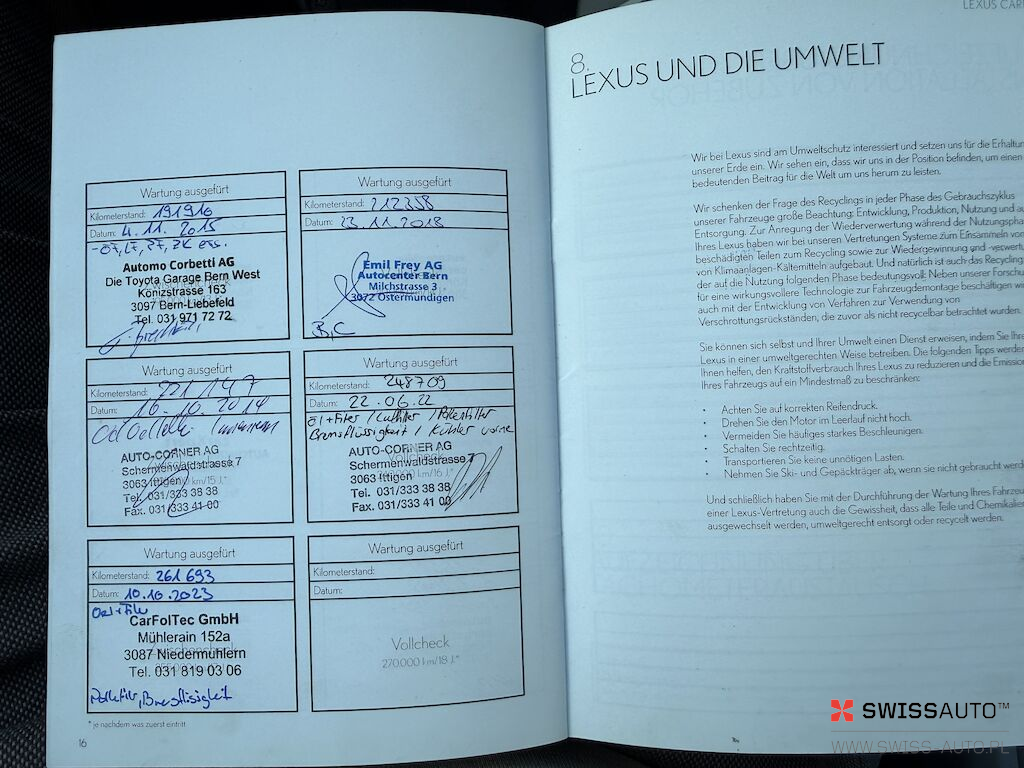 Wartung ausgefürt
Kilometerstand: 191916
Datum: 4.11.2015
Automo Corbetti AG
Die Toyota Garage Bern West
Könizstrasse 163
3097 Bern-Liebefeld
Tel. 031 971 72 72
Wartung ausgefürt
Kilometerstand: 212358
Datum: 23.11.2018
Emil Frey AG
Autocenter Bern
Milchstrasse 3
3072 Ostermundigen
B,C
Wartung ausgefürt
Kilometerstand:
Datum: 16.10.2019
AUTO-CORNER AG
Schermenwaldstrasse 7
3063 Ittigen
Tel. 031/333 38 38
Fax. 031/333 41 00
Wartung ausgefürt
Kilometerstand: 248709
Datum: 22.06.22
Öl+Filter / Luftfilter / Pollenfilter
Bremsflüssigkeit / Kühler vorne
AUTO-CORNER AG
Schermenwaldstrasse 7
3063 Ittigen
Tel. 031/333 38 38
Fax. 031/333 41 00
Wartung ausgefürt
Kilometerstand: 261693
Datum: 10.10.2023
CarFolTec GmbH
Mühlerain 152a
3087 Niedermuhlern
Tel. 031 819 03 06
Wartung ausgefürt
Kilometerstand:
Datum:
Vollcheck
270.000 km/18 J.*
* je nachdem was zuerst eintritt
16
LEXUS CAR
8.
LEXUS UND DIE UMWELT
Wir bei Lexus sind am Umweltschutz interessiert und setzen uns für die Erhaltun
unserer Erde ein. Wir sehen ein, dass wir uns in der Position befinden, um einen
bedeutenden Beitrag für die Welt um uns herum zu leisten.
Wir schenken der Frage des Recyclings in jeder Phase des Gebrauchszyklus
unserer Fahrzeuge große Beachtung: Entwicklung, Produktion, Nutzung und au
Entsorgung. Zur Anregung der Wiederverwertung während der Nutzungspha
Ihres Lexus haben wir bei unseren Vertretungen Systeme zum Einsammeln von
beschädigten Teilen zum Recycling sowie zur Wiedergewinnung und -verwert
von Klimaanlagen-Kältemitteln aufgebaut. Und natürlich ist auch das Recycling
der auf die Nutzung folgenden Phase bedeutungsvoll: Neben unserer Forschun
für eine wirkungsvollere Technologie zur Fahrzeugdemontage beschäftigen wi
auch mit der Entwicklung von Verfahren zur Verwendung von
Verschrottungsrückständen, die zuvor als nicht recycelbar betrachtet wurden.
Sie können sich selbst und Ihrer Umwelt einen Dienst erweisen, indem Sie Ihre
Lexus in einer umweltgerechten Weise betreiben. Die folgenden Tipps werden
Ihnen helfen, den Kraftstoffverbrauch Ihres Lexus zu reduzieren und die Emission
Ihres Fahrzeugs auf ein Mindestmaß zu beschränken:
• Achten Sie auf korrekten Reifendruck.
• Drehen Sie den Motor im Leerlauf nicht hoch.
• Vermeiden Sie häufiges starkes Beschleunigen.
• Schalten Sie rechtzeitig.
• Transportieren Sie keine unnötigen Lasten.
• Nehmen Sie Ski- und Gepäckträger ab, wenn sie nicht gebraucht werd
Und schließlich haben Sie mit der Durchführung der Wartung Ihres Fahrzeu
einer Lexus-Vertretung auch die Gewissheit, dass alle Teile und Chemikalie
ausgewechselt werden, umweltgerecht entsorgt oder recycelt werden.
SWISSAUTO™
WWW.SWISS-AUTO.PL